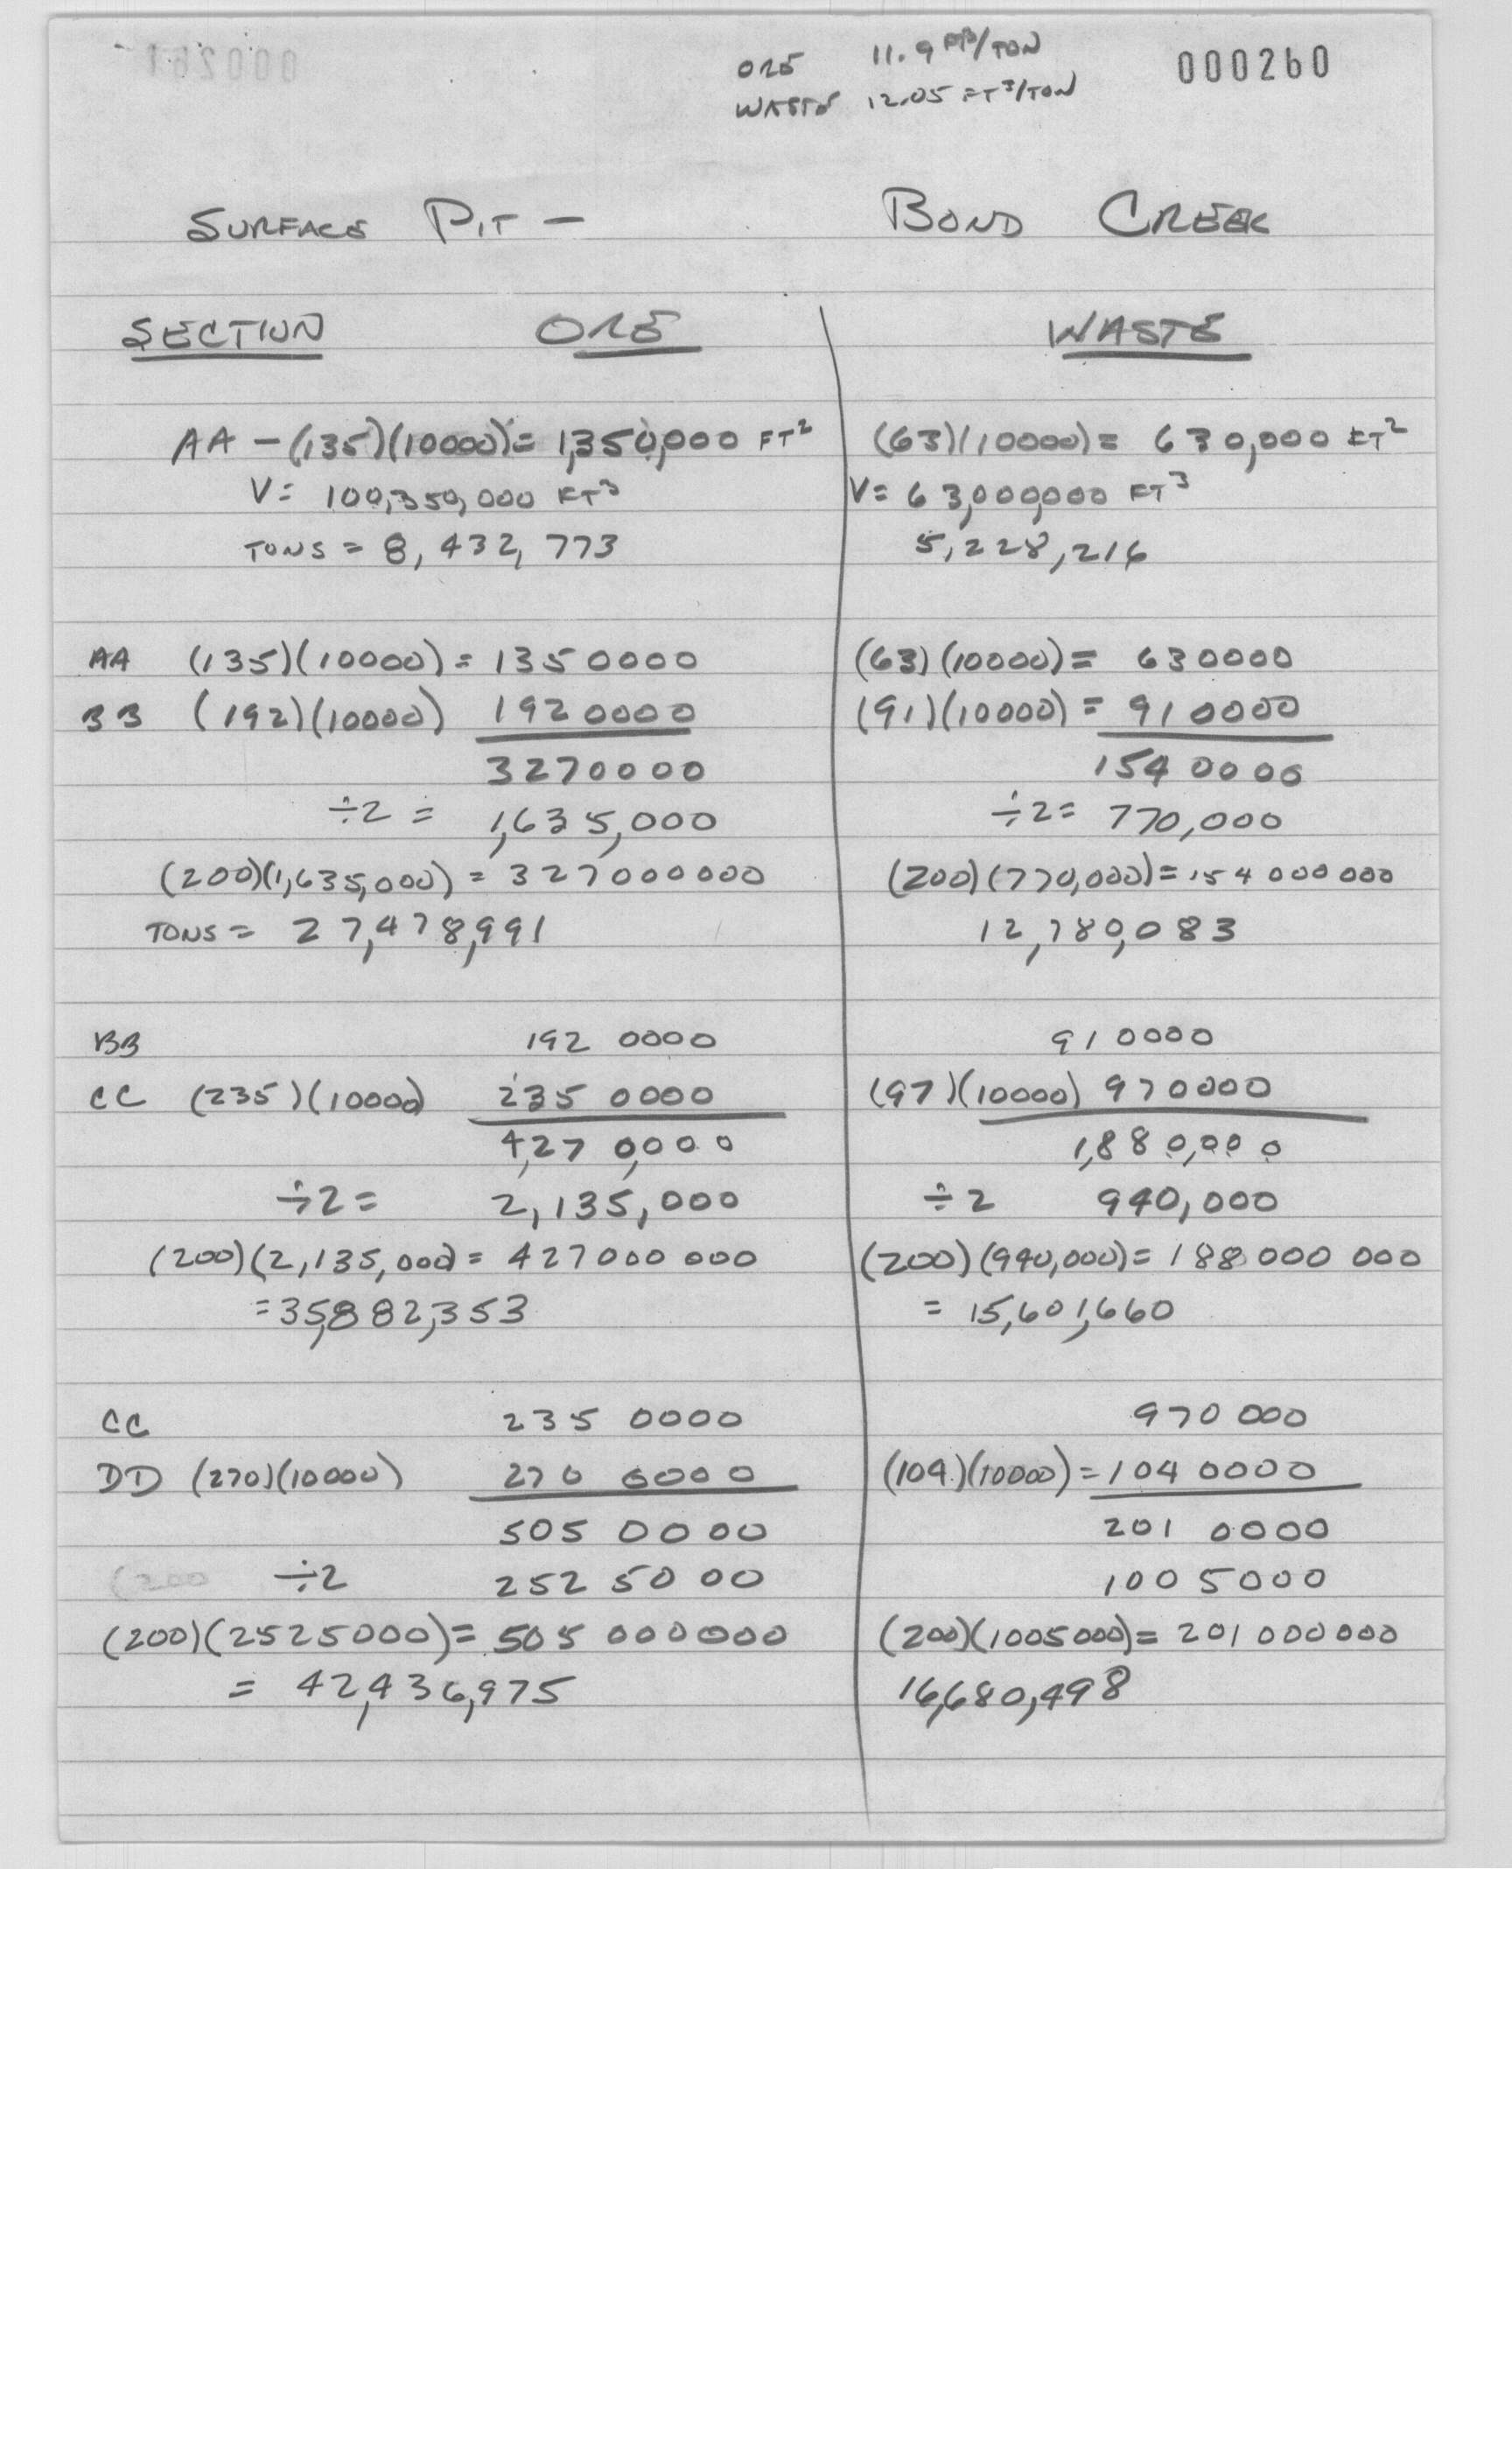 000261
ORE 11.9 FT³/TON 000260
WASTE 12.05 FT³/TON
SURFACE PIT — BOND CREEK
SECTION ORE WASTE
AA — (135)(10000) = 1,350,000 FT² (63)(10000) = 630,000 FT²
V = 100,350,000 FT³ V = 63,000,000 FT³
TONS = 8,432,773 5,228,216
AA (135)(10000) = 1350000 (63)(10000) = 630000
BB (192)(10000) 1920000 (91)(10000) = 910000
3270000 1540000
÷2 = 1,635,000 ÷2 = 770,000
(200)(1,635,000) = 327000000 (200)(770,000) = 154000000
TONS = 27,478,991 12,780,083
BB 1920000 910000
CC (235)(10000) 2350000 (97)(10000) 970000
4,270,000 1,880,000
÷2 = 2,135,000 ÷2 940,000
(200)(2,135,000) = 427000000 (200)(940,000) = 188000000
= 35,882,353 = 15,601,660
CC 2350000 970000
DD (270)(10000) 2700000 (104)(10000) = 1040000
5050000 2010000
(200 ÷2 2525000 1005000
(200)(2525000) = 505000000 (200)(1005000) = 201000000
= 42,436,975 16,680,498